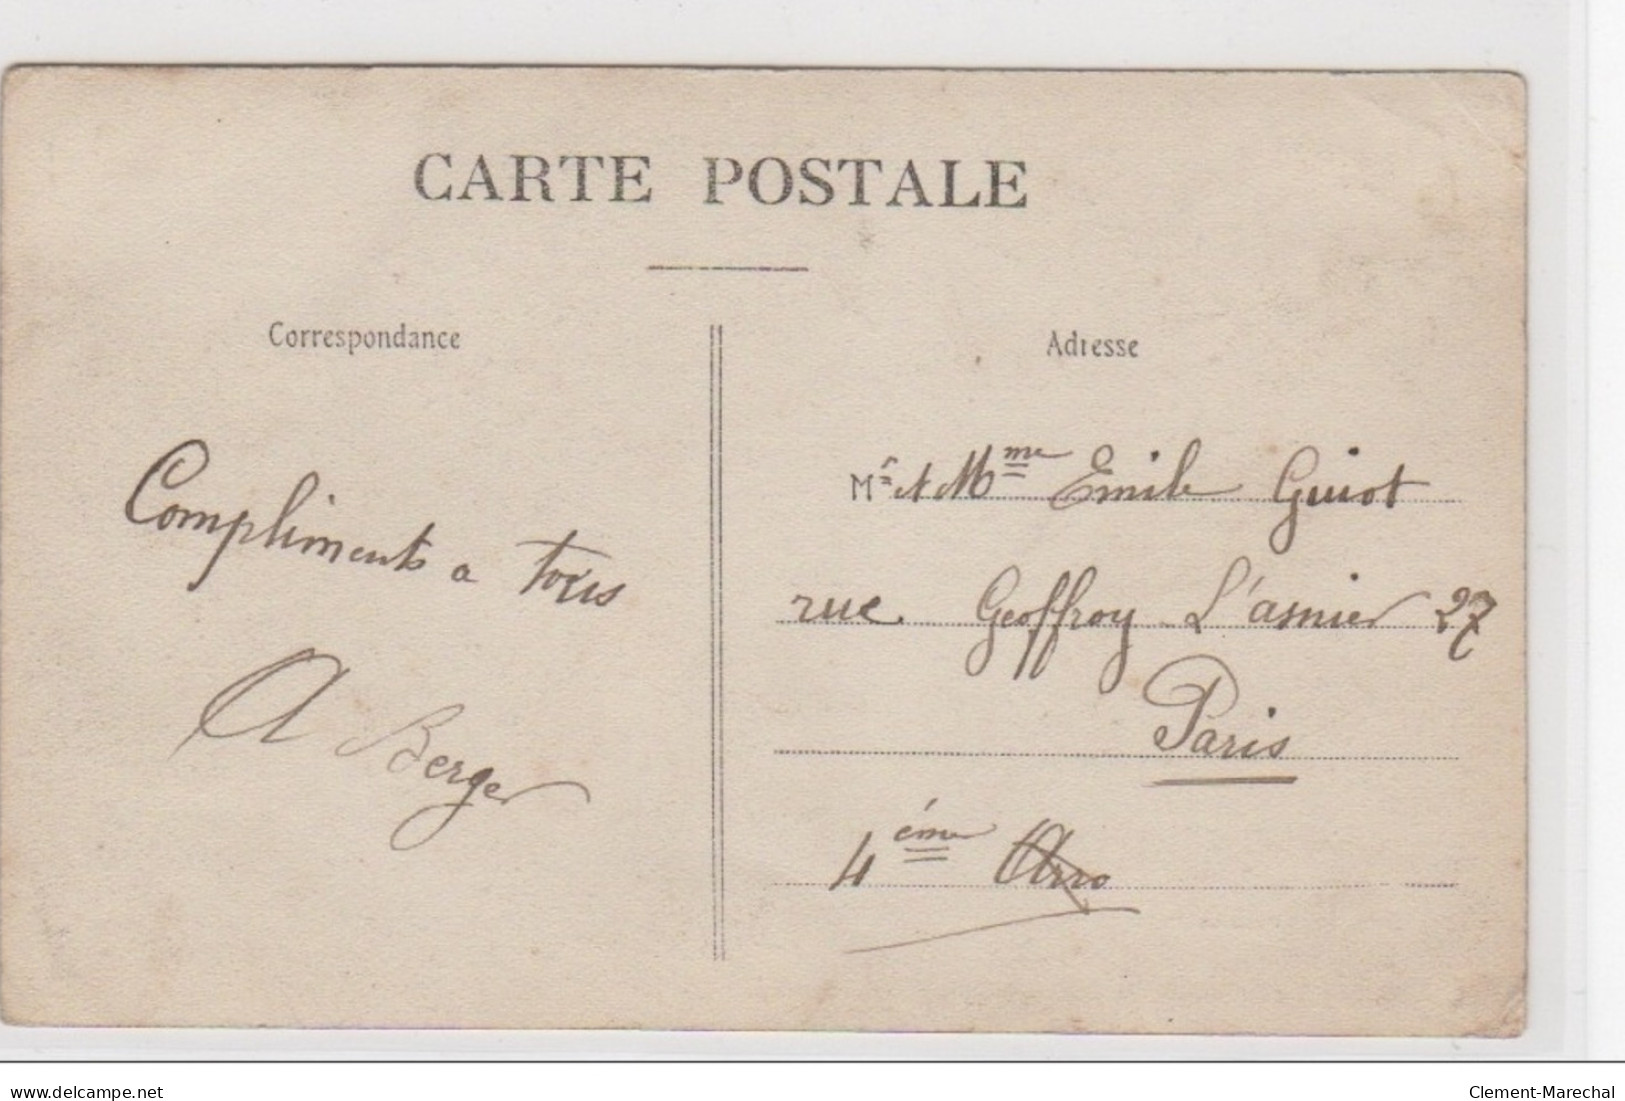 CARTE POSTALE
Correspondance
Compliments a tous
A Berger
Adresse
Mr et Mme Emile Guiot
rue Geoffroy L'asnier 27
Paris
4ème Arro
delcampe.net
Clement-Marechal